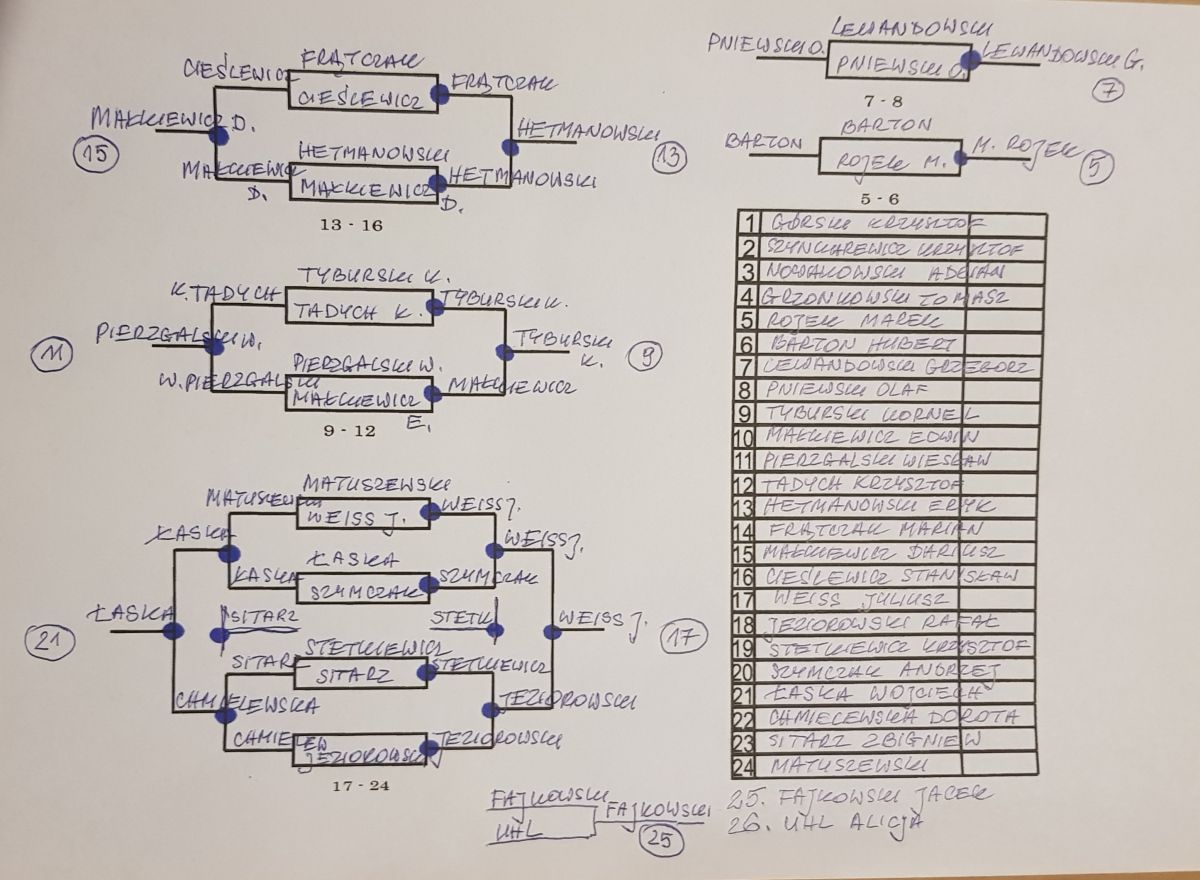 FRĄTCZAK
CIEŚLEWICZ
CIEŚLEWICZ
FRĄTCZAK
MAŁKIEWICZ D.
HETMANOWSKI
15
13
HETMANOWSKI
MAŁKIEWICZ D.
MAŁKIEWICZ D.
HETMANOWSKI
13 - 16
TYBURSKI K.
K. TADYCH
TADYCH K.
TYBURSKI K.
PIERZGALSKI W.
TYBURSKI K.
11
9
PIERZGALSKI W.
W. PIERZGALSKI
MAŁKIEWICZ E.
MAŁKIEWICZ
9 - 12
MATUSZEWSKI
WEISS J.
WEISS J.
ŁASKA
WEISS J.
ŁASKA
ŁASKA
SZYMCZAK
SZYMCZAK
ŁASKA
SITARZ
STETK
WEISS J.
21
17
STETKIEWICZ
SITARZ
SITARZ
STETKIEWICZ
CHMIELEWSKA
JEZIOROWSKI
CHMIELEW
JEZIOROWSKI
JEZIOROWSKI
17 - 24
FAJKOWSKI
UHL
FAJKOWSKI
25
LEWANDOWSKI
PNIEWSKI O.
PNIEWSKI O.
LEWANDOWSKI G.
7
7 - 8
BARTON
BARTON
ROJEK M.
M. ROJEK
5
5 - 6
1 GÓRSKI KRZYSZTOF
2 SZYNKAREWICZ KRZYSZTOF
3 NOWAKOWSKI ADRIAN
4 GRZONKOWSKI TOMASZ
5 ROJEK MAREK
6 BARTON HUBERT
7 LEWANDOWSKI GRZEGORZ
8 PNIEWSKI OLAF
9 TYBURSKI KORNEL
10 MAŁKIEWICZ EDWIN
11 PIERZGALSKI WIESŁAW
12 TADYCH KRZYSZTOF
13 HETMANOWSKI ERYK
14 FRĄTCZAK MARIAN
15 MAŁKIEWICZ DARIUSZ
16 CIEŚLEWICZ STANISŁAW
17 WEISS JULIUSZ
18 JEZIOROWSKI RAFAŁ
19 STETKIEWICZ KRZYSZTOF
20 SZYMCZAK ANDRZEJ
21 ŁASKA WOJCIECH
22 CHMIELEWSKA DOROTA
23 SITARZ ZBIGNIEW
24 MATUSZEWSKI
25. FAJKOWSKI JACEK
26. UHL ALICJA